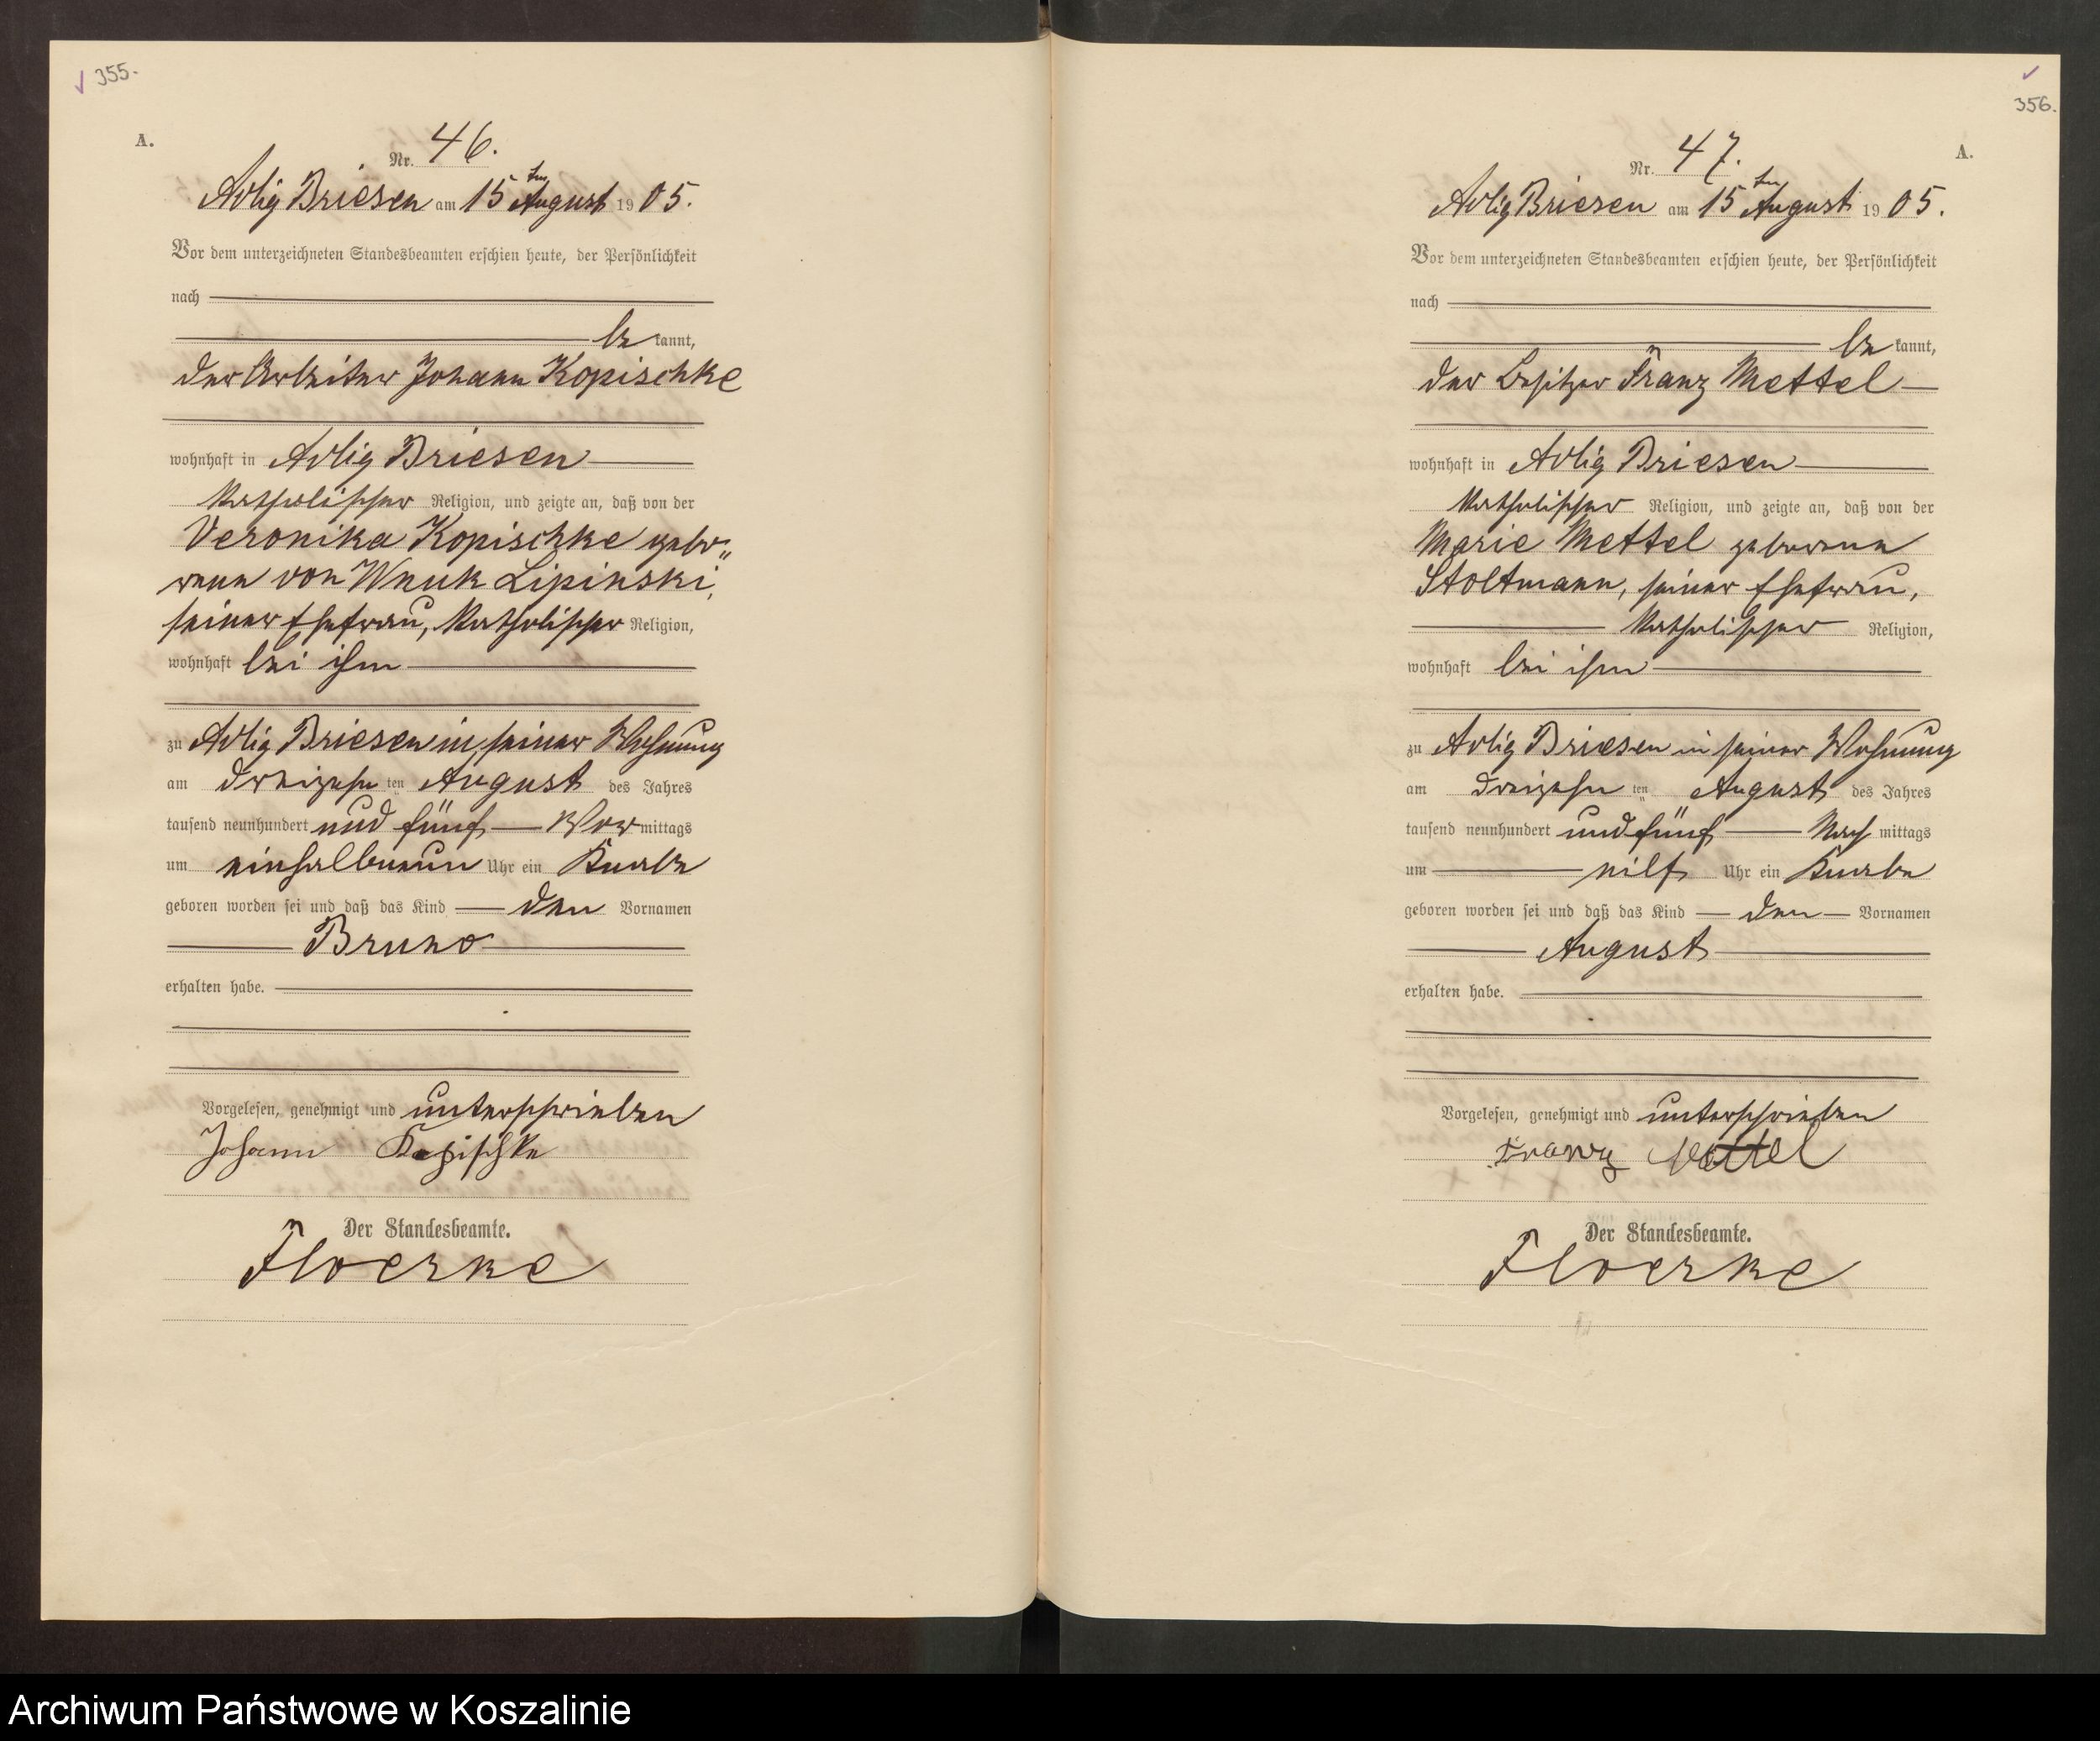 355.
A.
Nr. 46.
Adlig Briesen am 15ten August 1905.
Vor dem unterzeichneten Standesbeamten erschien heute, der Persönlichkeit
nach
bekannt,
der Arbeiter Johann Kopischke
wohnhaft in Adlig Briesen
katholischer Religion, und zeigte an, daß von der
Veronika Kopischke gebo„
renen von Wnuk Lipinski,
seiner Ehefrau, katholischer Religion,
wohnhaft bei ihm
zu Adlig Briesen in seiner Wohnung
am dreizehnten August des Jahres
tausend neunhundert und fünf Vormittags
um einhalbneun Uhr ein Knabe
geboren worden sei und daß das Kind den Vornamen
Bruno
erhalten habe.
Vorgelesen, genehmigt und unterschrieben
Johann Kopischke
Der Standesbeamte.
Floerke
356.
A.
Nr. 47.
Adlig Briesen am 15ten August 1905.
Vor dem unterzeichneten Standesbeamten erschien heute, der Persönlichkeit
nach
bekannt,
der Besitzer Franz Mettel
wohnhaft in Adlig Briesen
katholischer Religion, und zeigte an, daß von der
Marie Mettel geborenen
Stoltmann, seiner Ehefrau,
katholischer Religion,
wohnhaft bei ihm
zu Adlig Briesen in seiner Wohnung
am dreizehnten August des Jahres
tausend neunhundert und fünf Nachmittags
um eilf Uhr ein Knabe
geboren worden sei und daß das Kind den Vornamen
August
erhalten habe.
Vorgelesen, genehmigt und unterschrieben
Franz Mettel
Der Standesbeamte.
Floerke
Archiwum Państwowe w Koszalinie